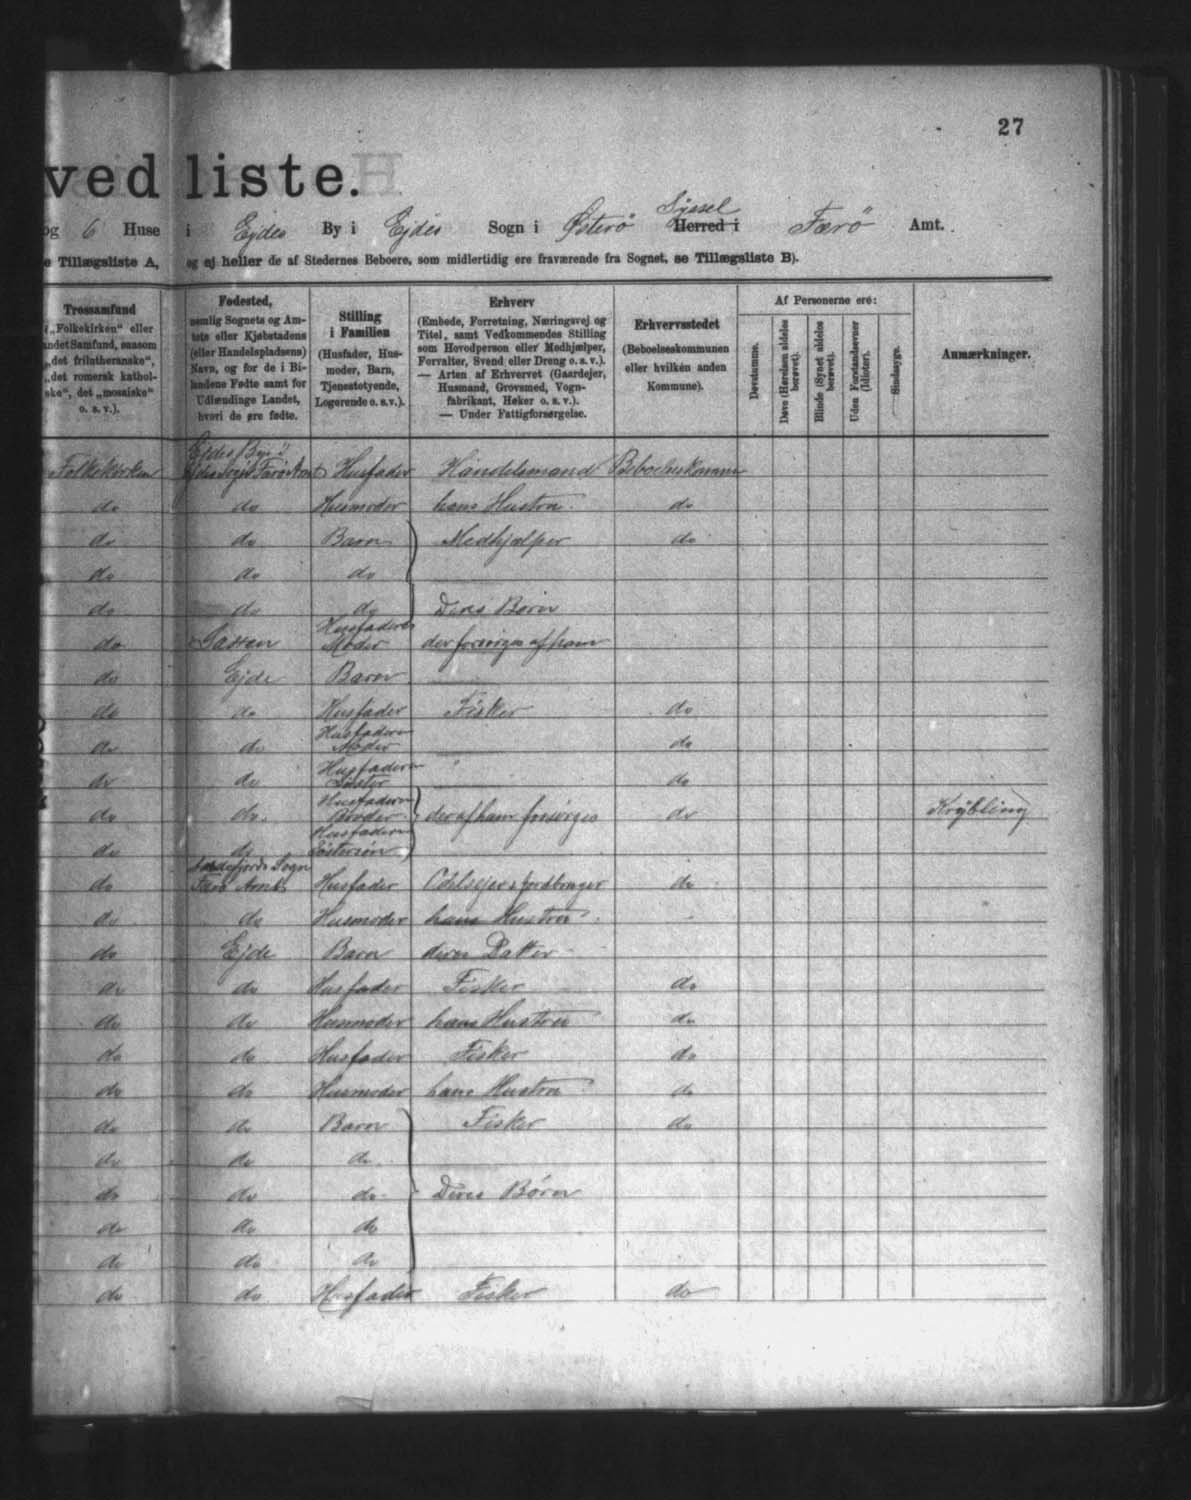 27
ved liste.
og 6 Huse i Ejdes By i Ejdes Sogn i Østerø Syssel Herred i Færø Amt.
e Tillægsliste A, og ej heller de af Stedernes Beboere, som midlertidig ere fraværende fra Sognet, se Tillægsliste B).
Trossamfund
(„Folkekirken“ eller
andet Samfund, saasom
„det frilutheranske“,
„det romersk kathol-
ske“, det „mosaiske“
o. s. v.).
Fødested,
nemlig Sognets og Am-
tets eller Kjøbstadens
(eller Handelspladsens)
Navn, og for de i Bi-
landene Fødte samt for
Udlændinge Landet,
hvori de ere fødte.
Stilling
i Familien
(Husfader, Hus-
moder, Barn,
Tjenestetyende,
Logerende o. s. v.).
Erhverv
(Embede, Forretning, Næringsvej og
Titel, samt Vedkommendes Stilling
som Hovedperson eller Medhjælper,
Forvalter, Svend eller Dreng o. s. v.).
— Arten af Erhvervet (Gaardejer,
Husmand, Grovsmed, Vogn-
fabrikant, Høker o. s. v.).
— Under Fattigforsørgelse.
Erhvervsstedet
(Beboelseskommunen
eller hvilken anden
Kommune).
Af Personerne ere:
Døvstumme.
Døve (Hørelsen aldeles
berøvet).
Blinde (Synet aldeles
berøvet).
Uden Forstandsevner
(Idioter).
Sindssyge.
Anmærkninger.
Ejdes By i
Folkekirken Ejdes Sogn Færø Amt Husfader Handelsmand Beboelseskomm
do do Husmoder hans Hustru do
do do Barn Medhjælper do
do do do
do do do Deres Børn
Husfaderens
do Moder der forsørges af ham
do Ejde Barn
do do Husfader Fisker do
Husfaderens
do do Moder do
Husfaderens
do do Søster do
Husfaderens
do do Broder der af ham forsørges do Krøbling
Husfaderens
do do Søstersøn
Sogn
do Færø Amt Husfader Odelsejer & Jordbruger do
do do Husmoder hans Hustru
do Ejde Barn deres Datter
do do Husfader Fisker do
do do Husmoder hans Hustru do
do do Husfader Fisker do
do do Husmoder hans Hustru do
do do Barn Fisker do
do do do
do do do Deres Børn
do do do
do do do
do do Husfader Fisker do